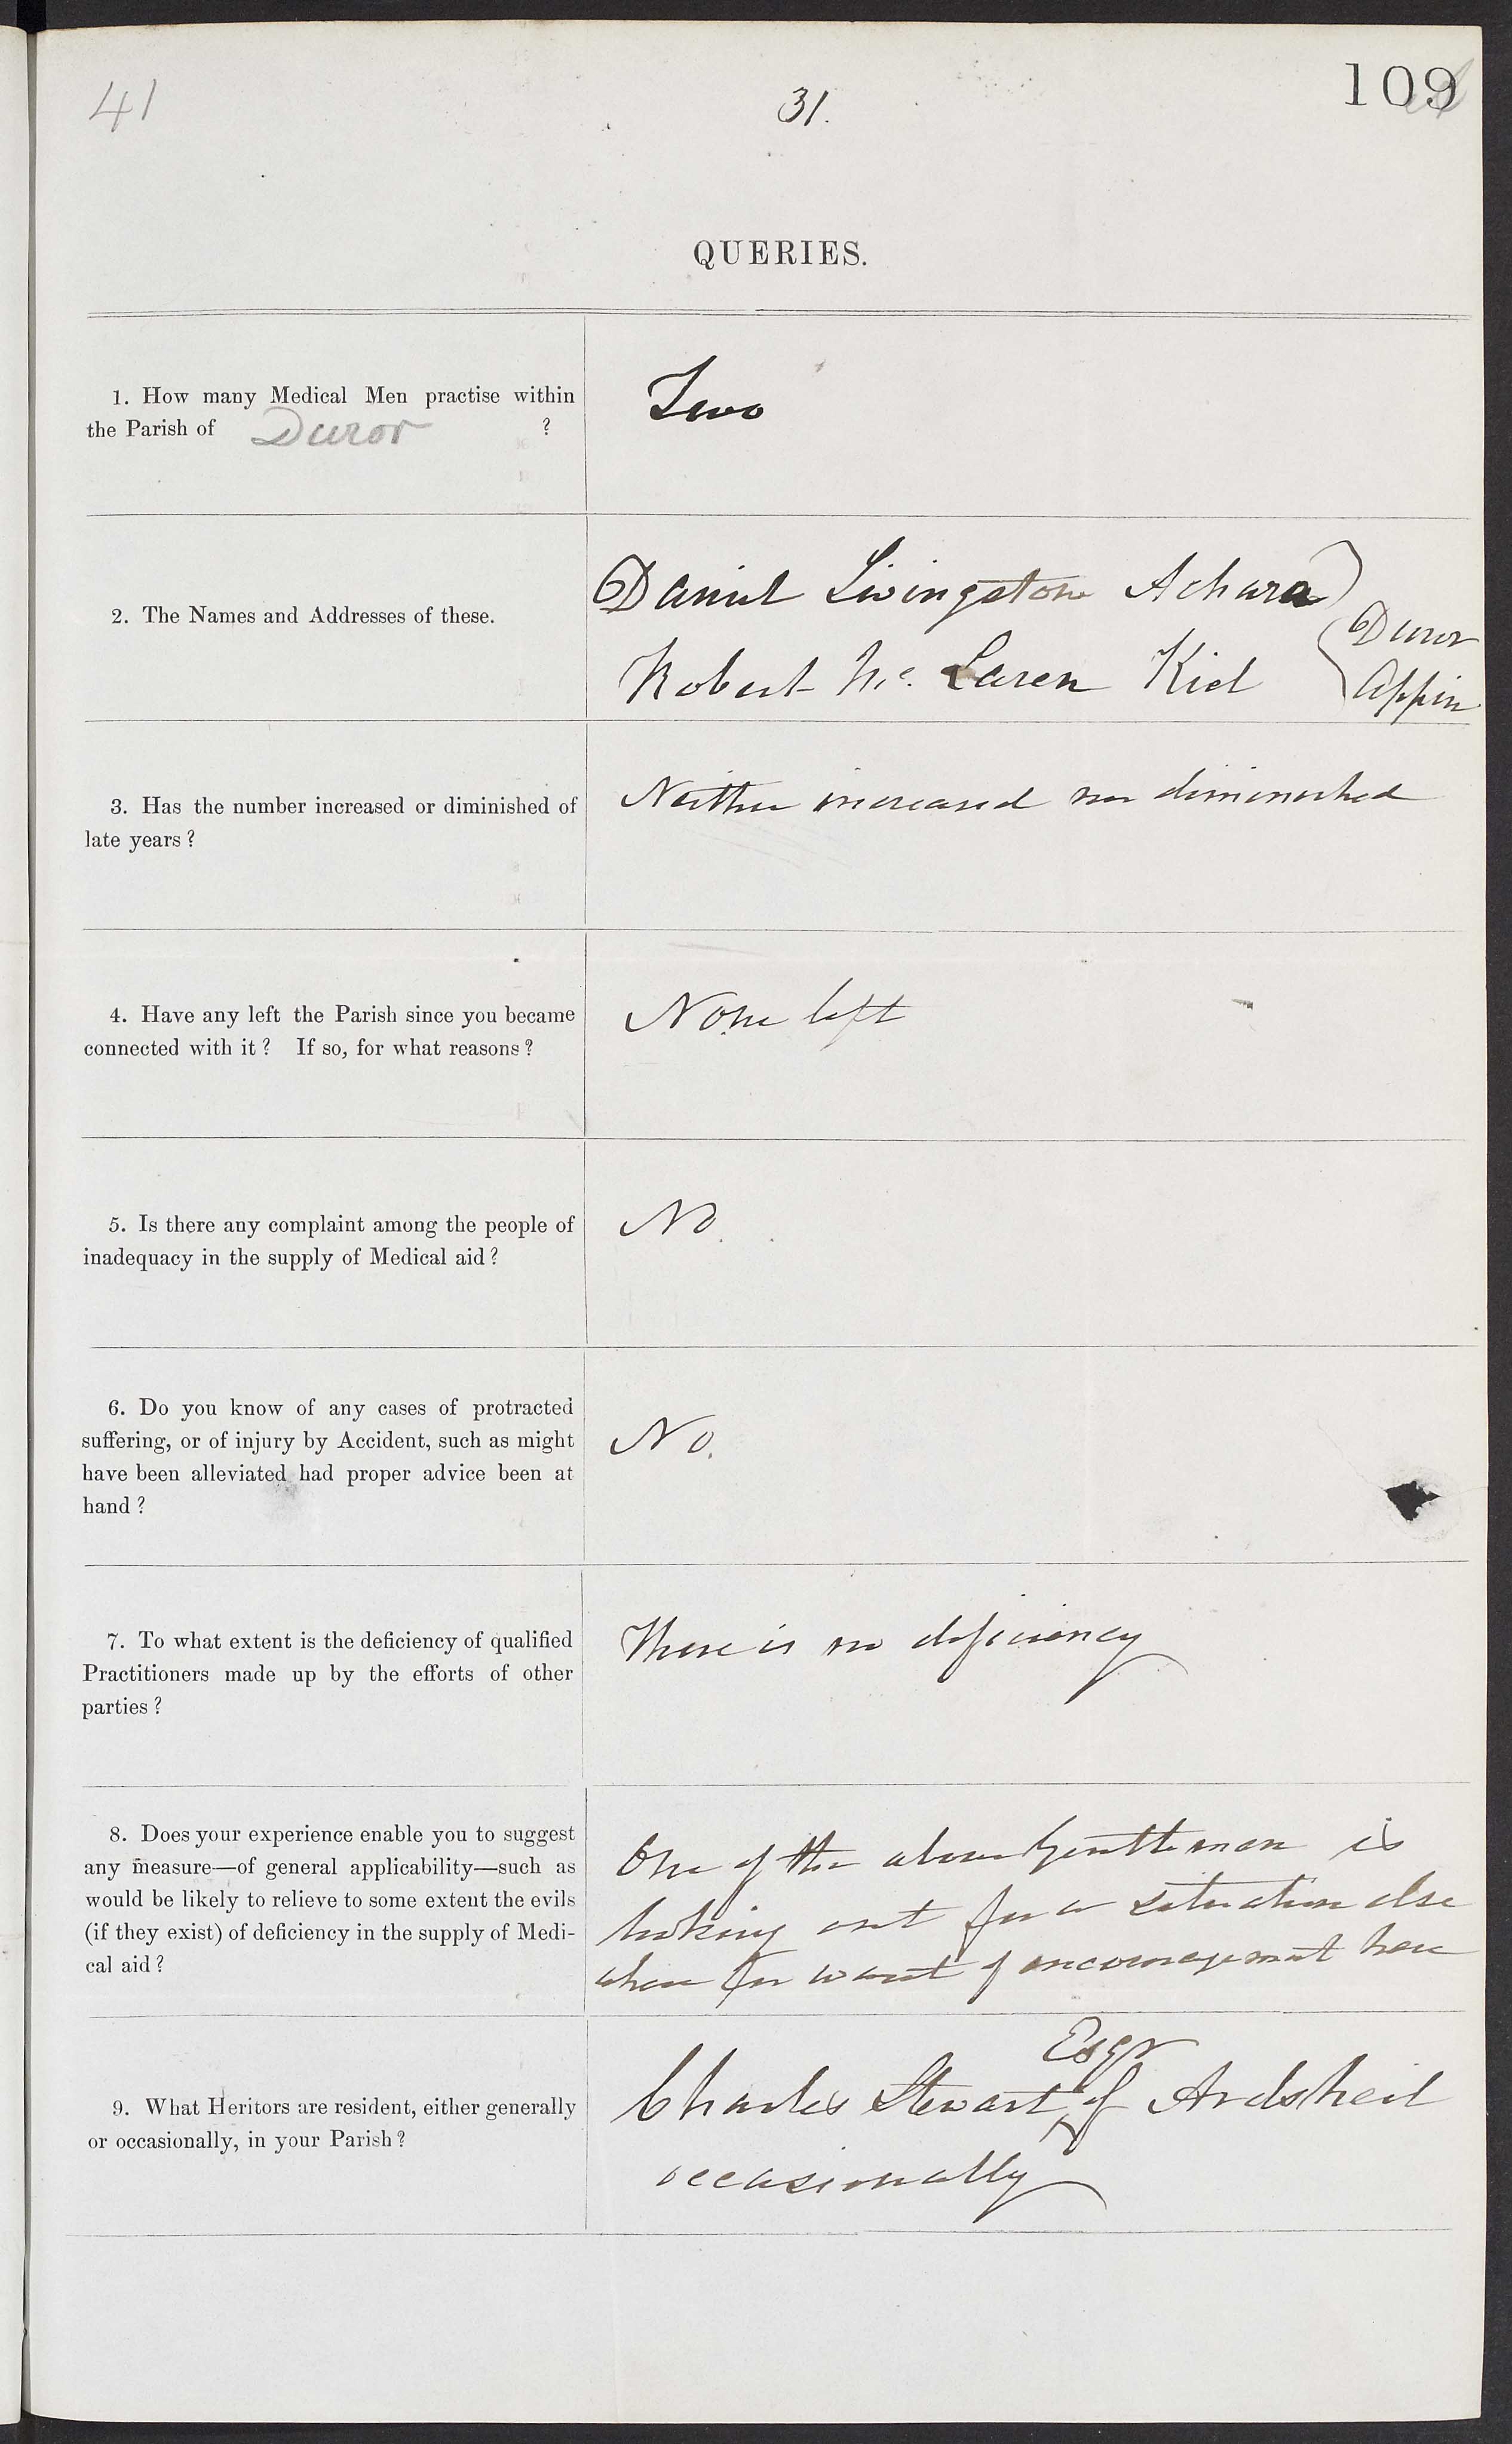 41
31.
109
QUERIES.
1. How many Medical Men practise within
the Parish of Duror ?
Two
2. The Names and Addresses of these.
Daniel Livingstone Achara
Robert Mc. Laren Kiel
Duror
Appin
3. Has the number increased or diminished of
late years?
Neither increased nor diminished
4. Have any left the Parish since you became
connected with it? If so, for what reasons?
None left
5. Is there any complaint among the people of
inadequacy in the supply of Medical aid?
No.
6. Do you know of any cases of protracted
suffering, or of injury by Accident, such as might
have been alleviated had proper advice been at
hand?
No.
7. To what extent is the deficiency of qualified
Practitioners made up by the efforts of other
parties?
There is no deficiency
8. Does your experience enable you to suggest
any measure—of general applicability—such as
would be likely to relieve to some extent the evils
(if they exist) of deficiency in the supply of Medi-
cal aid?
One of the above Gentleman is
looking out for a situation else
where for want of encouragement here
9. What Heritors are resident, either generally
or occasionally, in your Parish?
Esqr
Charles Stewart of Ardsheil
occasionally